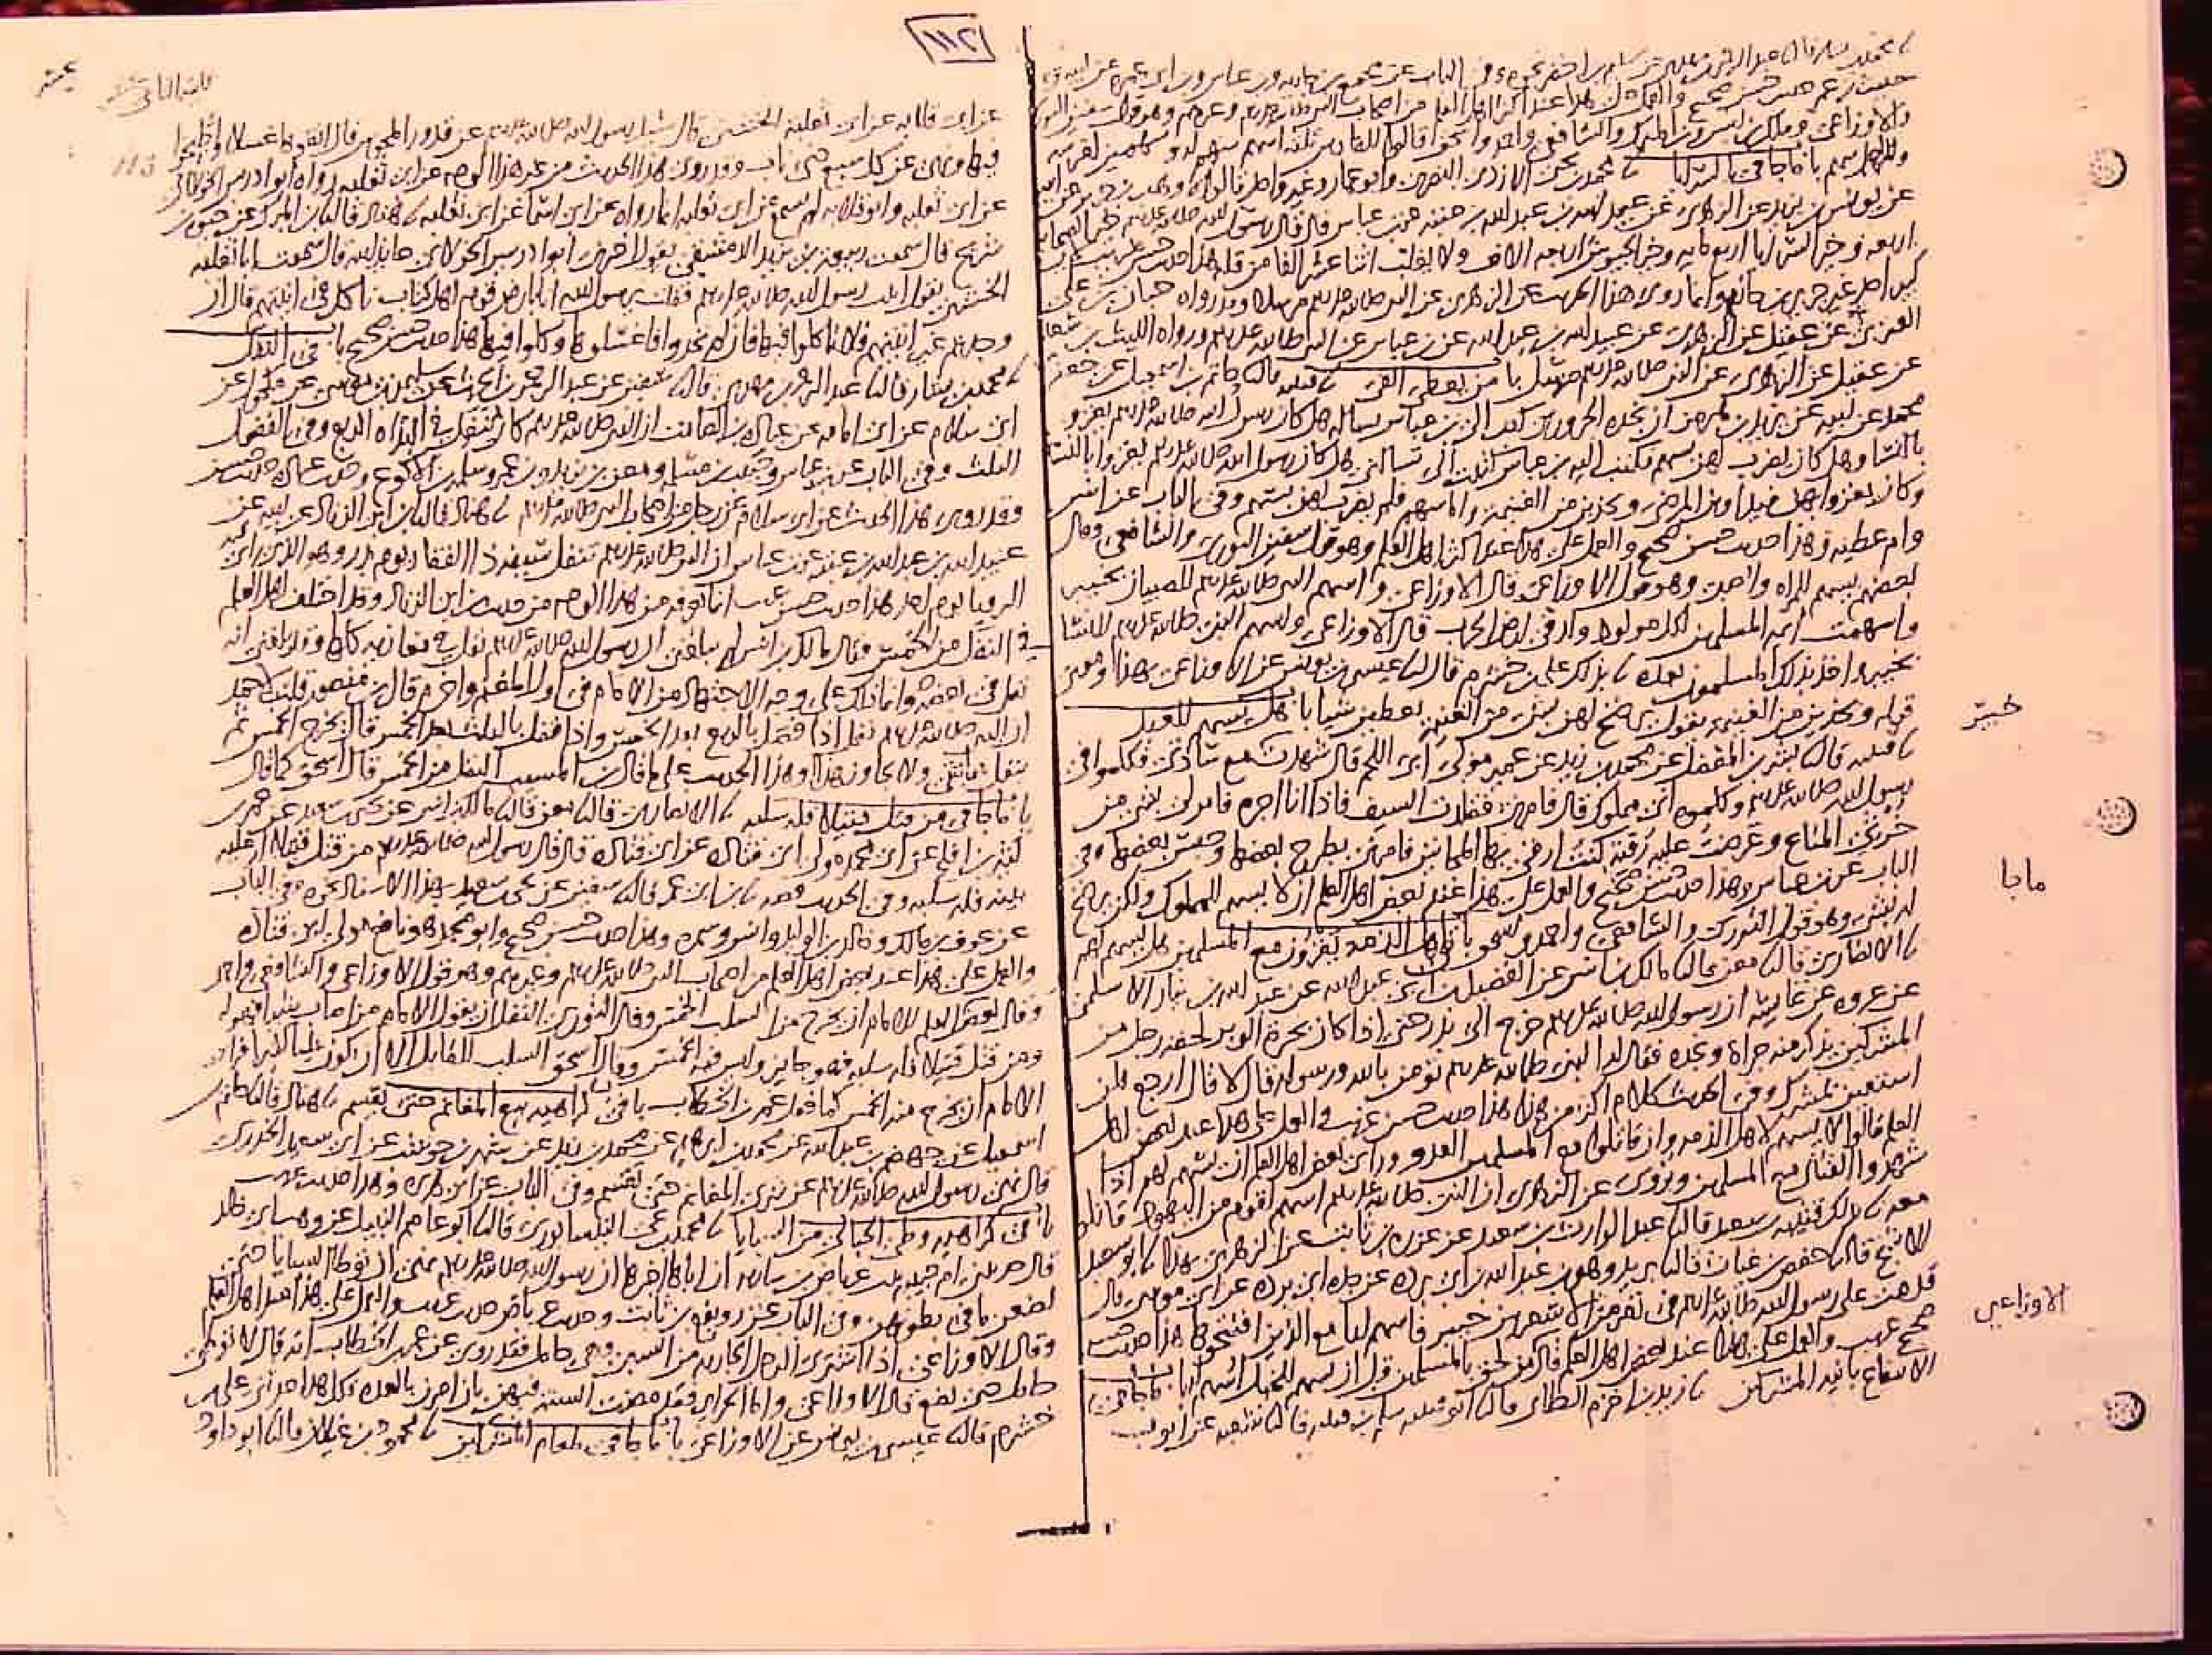 ١١٢
حديث بن عمر حديث حسن صحيح والعمل على هذا عند اكثر اهل العلم من اصحاب النبي صلى الله عليه وسلم وغيرهم وهو قول سفين الثوري
والاوزاعي وملك بن انس وبن المبرك والشافعي واحمد واسحق قالوا للفارس ثلثة اسهم سهم له وسهمين لفرسه
وللراجل سهم باب ما جا في السرايا محمد بن يحيى الازدي البصري وابو عمار وغير واحد قالوا وهب بن جرير عن ابيه
عن يونس بن يزيد عن الزهري عن عبيد الله بن عبد الله بن عتبة عن بن عباس قال قال رسول الله صلى الله عليه وسلم خير الصحابة
اربعة وخير السرايا اربعمائة وخير الجيوش اربعة الاف ولا يغلب اثنا عشر الفا من قلة هذا حديث حسن غريب
كبير احد غير جرير بن حازم وانما روي هذا الحديث عن الزهري عن النبي صلى الله عليه وسلم مرسلا وقد رواه حبان بن علي
العنزي عن عقيل عن الزهري عن عبيد الله بن عبد الله عن بن عباس عن النبي صلى الله عليه وسلم ورواه الليث بن سعد
عن عقيل عن الزهري عن النبي صلى الله عليه وسلم مرسل باب من يعطى الفي قتيبة قال حاتم بن اسمعيل عن جعفر
محمد عن ابيه عن يزيد بن هرمز ان نجدة الحروري كتب الى بن عباس يساله هل كان رسول الله صلى الله عليه وسلم يغزو
بالنسا وهل كان يضرب لهن بسهم فكتب اليه بن عباس كتبت الي تسالني هل كان رسول الله صلى الله عليه وسلم يغزو بالنسا
وكان يغزو بهن فيداوين المرضى ويحذين من الغنيمة واما بسهم فلم يضرب لهن بسهم وفي الباب عن انس
وام عطية وهذا حديث حسن صحيح والعمل على هذا عند اكثر اهل العلم وهو قول سفين الثوري والشافعي وقال
بعضهم يسهم للمراة والصبي وهو قول الاوزاعي قال الاوزاعي واسهم النبي صلى الله عليه وسلم للصبيان بخيبر
واسهمت ايمة المسلمين لكل مولود ولد في ارض الحرب قال الاوزاعي واسهم النبي صلى الله عليه وسلم للنسا
بخيبر واخذ بذلك المسلمون بعده بذلك علي بن خشرم قال عيسى بن يونس عن الاوزاعي بهذا ومعنى
قوله ويحذين من الغنيمة يقول يرضخ لهن بشي من الغنيمة يعطين شيا باب هل يسهم للعبد
قتيبة قال بشر بن المفضل عن محمد بن زيد عن عمير مولى ابي اللحم قال شهدت مع سادتي فكلموا في
رسول الله صلى الله عليه وسلم وكلموه اني مملوك قال فامرني فقلدت السيف فاذا انا اجره فامر لي بشي من
خرثي المتاع وعرضت عليه رقية كنت ارقي بها المجانين فامرني بطرح بعضها وحبس بعضها وفي
الباب عن بن عباس وهذا حديث حسن صحيح والعمل على هذا عند بعض اهل العلم ان لا يسهم للمملوك ولكن يرضخ
له بشي وهو قول الثوري والشافعي واحمد واسحق باب في اهل الذمة يغزون مع المسلمين هل يسهم لهم
الانصاري قال معن قال مالك بن انس عن الفضيل بن ابي عبد الله عن عبد الله بن نيار الاسلمي
عن عروة عن عايشة ان رسول الله صلى الله عليه وسلم خرج الى بدر حتى اذا كان بحرة الوبر لحقه رجل من
المشركين يذكر منه جراة ونجدة فقال له النبي صلى الله عليه وسلم تومن بالله ورسوله قال لا قال ارجع فلن
استعين بمشرك وفي الحديث كلام اكثر من هذا هذا حديث حسن غريب والعمل على هذا عند بعض اهل
العلم قالوا لا يسهم لاهل الذمة وان قاتلوا مع المسلمين العدو وراى بعض اهل العلم ان يسهم لهم اذا
شهدوا القتال مع المسلمين ويروى عن الزهري ان النبي صلى الله عليه وسلم اسهم لقوم من اليهود قاتلوا
معه بذلك قتيبة بن سعيد قال عبد الوارث بن سعيد عن عزرة بن ثابت عن الزهري بهذا ابو سعيد
الاشج قال حفص بن غياث قال بريد وهو بن عبد الله بن ابي بردة عن جده ابي بردة عن ابي موسى قال
قدمت على رسول الله صلى الله عليه وسلم في نفر من الاشعريين خيبر فاسهم لنا مع الذين افتتحوها هذا حديث
صحيح غريب والعمل على هذا عند بعض اهل العلم قال من لحق بالمسلمين قبل ان يسهم للخيل اسهم له باب ما جا في
الانتفاع بانية المشركين زيد بن اخزم الطائي قال ابو قتيبة سلم بن قتيبة قال شعبة عن ايوب
خيبر
ماجا
الاوزاعي
عشر
113
عن ابي قلابة عن ابي ثعلبة الخشني قال سئل رسول الله صلى الله عليه وسلم عن قدور المجوس قال انقوها غسلا واطبخوا
فيها ونهى عن كل سبع ذي ناب وقد روي هذا الحديث من غير هذا الوجه عن ابي ثعلبة رواه ابو ادريس الخولاني
عن ابي ثعلبة وابو قلابة لم يسمع من ابي ثعلبة انما رواه عن ابي اسما عن ابي ثعلبة هناد قال بن المبرك عن حيوة بن
شريح قال سمعت ربيعة بن يزيد الدمشقي يقول اخبرني ابو ادريس الخولاني عايذ الله قال سمعت ابا ثعلبة
الخشني يقول اتيت رسول الله صلى الله عليه وسلم فقلت يرسول الله انا بارض قوم اهل كتاب ناكل في انيتهم قال ان
وجدتم غير انيتهم فلا تاكلوا فيها فان لم تجدوا فاغسلوها وكلوا فيها هذا حديث حسن صحيح باب في النفل
محمد بن بشار قال عبد الرحمن بن مهدي قال سفين عن عبد الرحمن بن الحرث عن سليمن بن موسى عن مكحول عن
ابي سلام عن ابي امامة عن عبادة بن الصامت ان النبي صلى الله عليه وسلم كان ينفل في البداة الربع وفي القفول
الثلث وفي الباب عن بن عباس وحبيب بن مسلمة ومعن بن يزيد وبن عمر وسلمة بن الاكوع وحديث عبادة حديث حسن
وقد روي هذا الحديث عن ابي سلام عن رجل من اصحاب النبي صلى الله عليه وسلم هناد قال بن ابي الزناد عن ابيه عن
عبيد الله بن عبد الله بن عتبة عن بن عباس ان النبي صلى الله عليه وسلم تنفل سيفه ذا الفقار يوم بدر وهو الذي راى فيه
الرويا يوم احد هذا حديث حسن غريب انما نعرفه من هذا الوجه من حديث ابن ابي الزناد وقد اختلف اهل العلم
في النفل من الخمس فقال مالك بن انس لم يبلغني ان رسول الله صلى الله عليه وسلم نفل في مغازيه كلها وقد بلغني انه
نفل في بعضها وانما ذلك على وجه الاجتهاد من الامام في اول المغنم واخره قال بن منصور قلت لاحمد
ان النبي صلى الله عليه وسلم نفل اذا فصل بالربع بعد الخمس واذا قفل بالثلث بعد الخمس فقال يخرج الخمس ثم
ينفل مما بقي ولا يجاوز هذا وهذا الحديث على ما قال بن المسيب النفل من الخمس قال اسحق كما قال
باب ما جا في من قتل قتيلا فله سلبه الانصاري قال معن قال مالك بن انس عن يحيى بن سعيد عن عمر بن
كثير بن افلح عن ابي محمد مولى ابي قتادة عن ابي قتادة قال قال رسول الله صلى الله عليه وسلم من قتل قتيلا له عليه
بينة فله سلبه وفي الحديث قصة بن ابي عمر قال سفين عن يحيى بن سعيد بهذا الاسناد نحوه وفي الباب
عن عوف بن مالك وخالد بن الوليد وانس وسمرة وهذا حديث حسن صحيح وابو محمد هو نافع مولى ابي قتادة
والعمل على هذا عند بعض اهل العلم من اصحاب النبي صلى الله عليه وسلم وغيرهم وهو قول الاوزاعي والشافعي واحمد
وقال بعض اهل العلم للامام ان يخرج من السلب الخمس وقال الثوري النفل ان يقول الامام من اصاب شيا فهو له
ومن قتل قتيلا فله سلبه فهو جايز وليس فيه الخمس وقال اسحق السلب للقاتل الا ان يكون شيا كثيرا فراى
الامام ان يخرج منه الخمس كما فعل عمر بن الخطاب باب في كراهية بيع المغانم حتى تقسم هناد قال حاتم بن
اسمعيل عن جهضم بن عبد الله عن محمد بن ابراهيم عن محمد بن زيد عن شهر بن حوشب عن ابي سعيد الخدري
قال نهى رسول الله صلى الله عليه وسلم عن شرى المغانم حتى تقسم وفي الباب عن ابي هريرة وهذا حديث غريب
باب في كراهية وطي الحبالى من السبايا محمد بن يحيى النيسابوري قال ابو عاصم النبيل عن وهب ابي خالد
قال حدثتني ام حبيبة بنت عرباض بن سارية ان اباها اخبرها ان رسول الله صلى الله عليه وسلم نهى ان توطا السبايا حتى
يضعن ما في بطونهن وفي الباب عن رويفع بن ثابت وحديث عرباض حديث غريب والعمل على هذا عند اهل العلم
وقال الاوزاعي اذا اشترى الرجل الجارية من السبي وهي حامل فقد روي عن عمر بن الخطاب انه قال لا توطى
حامل حتى تضع قال الاوزاعي واما الحراير فقد مضت السنة فيهن بان امرن بالعدة كل هذا حدثني علي بن
خشرم قال عيسى بن يونس عن الاوزاعي باب ما جا في طعام المشركين محمود بن غيلان قال ابو داود